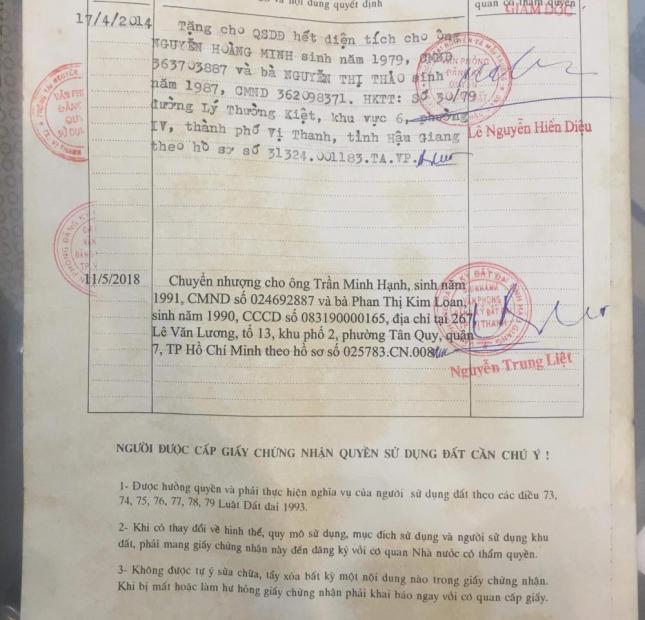 nội dung quyết định
quan có thẩm quyền
GIÁM ĐỐC
17/4/2014
Tặng cho QSDĐ hết diện tích cho ông
NGUYỄN HOÀNG MINH sinh năm 1979, CMND
363703887 và bà NGUYỄN THỊ THẢO sinh
năm 1987, CMND 362098371. HKTT: Số 30/79
đường Lý Thường Kiệt, khu vực 6, phường
IV, thành phố Vị Thanh, tỉnh Hậu Giang
theo hồ sơ số 31324.001183.TA.VP.
Lê Nguyễn Hiền Diệu
11/5/2018
Chuyển nhượng cho ông Trần Minh Hạnh, sinh năm
1991, CMND số 024692887 và bà Phan Thị Kim Loan,
sinh năm 1990, CCCD số 083190000165, địa chỉ tại 267
Lê Văn Lương, tổ 13, khu phố 2, phường Tân Quy, quận
7, TP Hồ Chí Minh theo hồ sơ số 025783.CN.008
Nguyễn Trung Liệt
NGƯỜI ĐƯỢC CẤP GIẤY CHỨNG NHẬN QUYỀN SỬ DỤNG ĐẤT CẦN CHÚ Ý !
1- Được hưởng quyền và phải thực hiện nghĩa vụ của người sử dụng đất theo các điều 73,
74, 75, 76, 77, 78, 79 Luật Đất đai 1993.
2- Khi có thay đổi về hình thể, quy mô sử dụng, mục đích sử dụng và người sử dụng khu
đất, phải mang giấy chứng nhận này đến đăng ký với cơ quan Nhà nước có thẩm quyền.
3- Không được tự ý sửa chữa, tẩy xóa bất kỳ một nội dung nào trong giấy chứng nhận.
Khi bị mất hoặc làm hư hỏng giấy chứng nhận phải khai báo ngay với cơ quan cấp giấy.